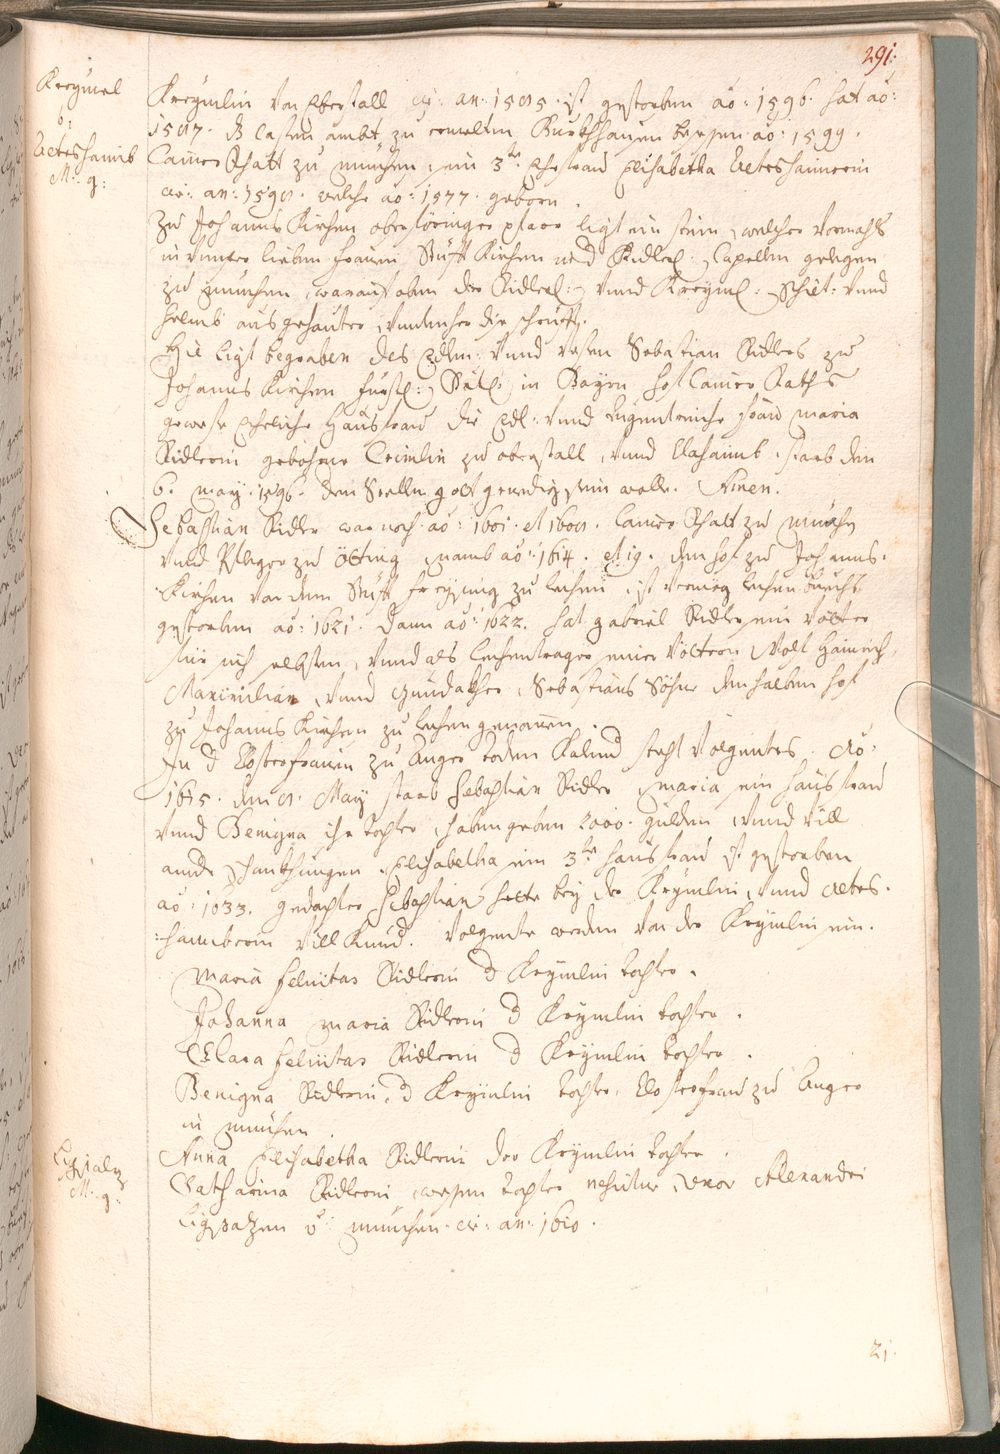 291:
Kreyml
b:
Aetershaimb
M: g:
Kreymlin von Oberstall cir: an: 1585. ist gestorben aö: 1596. hat aö:
1587. dz Casten ambt zu Burkhhausen aö: 1599.
Camer Rhatt zu München, sein 3te Ehefrau Elisabetha Aetershaimerin
cir: an: 1598. welche aö: 1577. geborn.
Zu Johanns Kirchen oberföringer pfarr ligt ein stein, welcher vormahls
in unser lieben Frauen Stüfft Kirchen und Ridlerl: Capellen gelegen
zu München, warauf oben der Ridlerl: unnd Kreyml: Schilt: unnd
helmb ausgehauter, unden her die schrüfft.
Hie ligt begraben des Edlen: unnd vesten Sebastian Ridlers zu
Johanns Kirchen Fürstl: Drtl: in Bayrn hof Camer Raths
geweste Eheliche Hausfrau die Edl: unnd tugentreiche Frau Maria
Ridlerin gebohrne Creimlin zu oberstall, unnd Clahaimb. starb den
6. May. 1596. dem Seelln gott genedig sein wolle. Amen.
Sebastian Ridler war noch aö: 1601. et 1608. Camer Rhatt zu München
unnd Pfleger zu Ötting, namb aö: 1614. et 19. den hof zu Johanns-
Kirchen von dem Stüfft Freysing zu Lehen, ist vermög Lehenbuechs
gestorben aö: 1621. dann aö: 1622. hat gabriel Ridler sein Vötter
für sich selbsten, unnd als Lehentrager seiner Vöttern, Wolf Hainrich,
Maximilian, unnd Gundakher, Sebastians Söhne den halben hof
zu Johanns Kirchen zu Lehen genomen.
In d Closterfrauen zu Anger todten Kalend steht volgentes. Aö:
1615. den 8. May starb Sebastian Ridler, Maria sein hausfrau
unnd Benigna ihr tochter, haben geben 2000. gulden, unnd vill
ande Schankhungen. Elisabetha sein 3te hausfrau ist gestorben
aö: 1633. gedachter Sebastian hette bey der Kreymlin, unnd Aeters-
:haimberin vill Kind. Volgente werden von der Kreymlin sein.
Maria Felicitas Ridlerin d Kreymlin tochter.
Johanna Maria Ridlerin d Kreymlin tochter.
Clara Felicitas Ridlerin d Kreymlin tochter.
Benigna Ridlerin, d Kreymlin tochter, Closterfrau zu Anger
in München.
Anna Elisabetha Ridlerin der Kreymlin tochter.
Ligsalz
M: g:
Catharina Ridlerin, wessen tochter nescitur, uxor Alexandri
Ligsalzen v: München. cir: an: 1610.